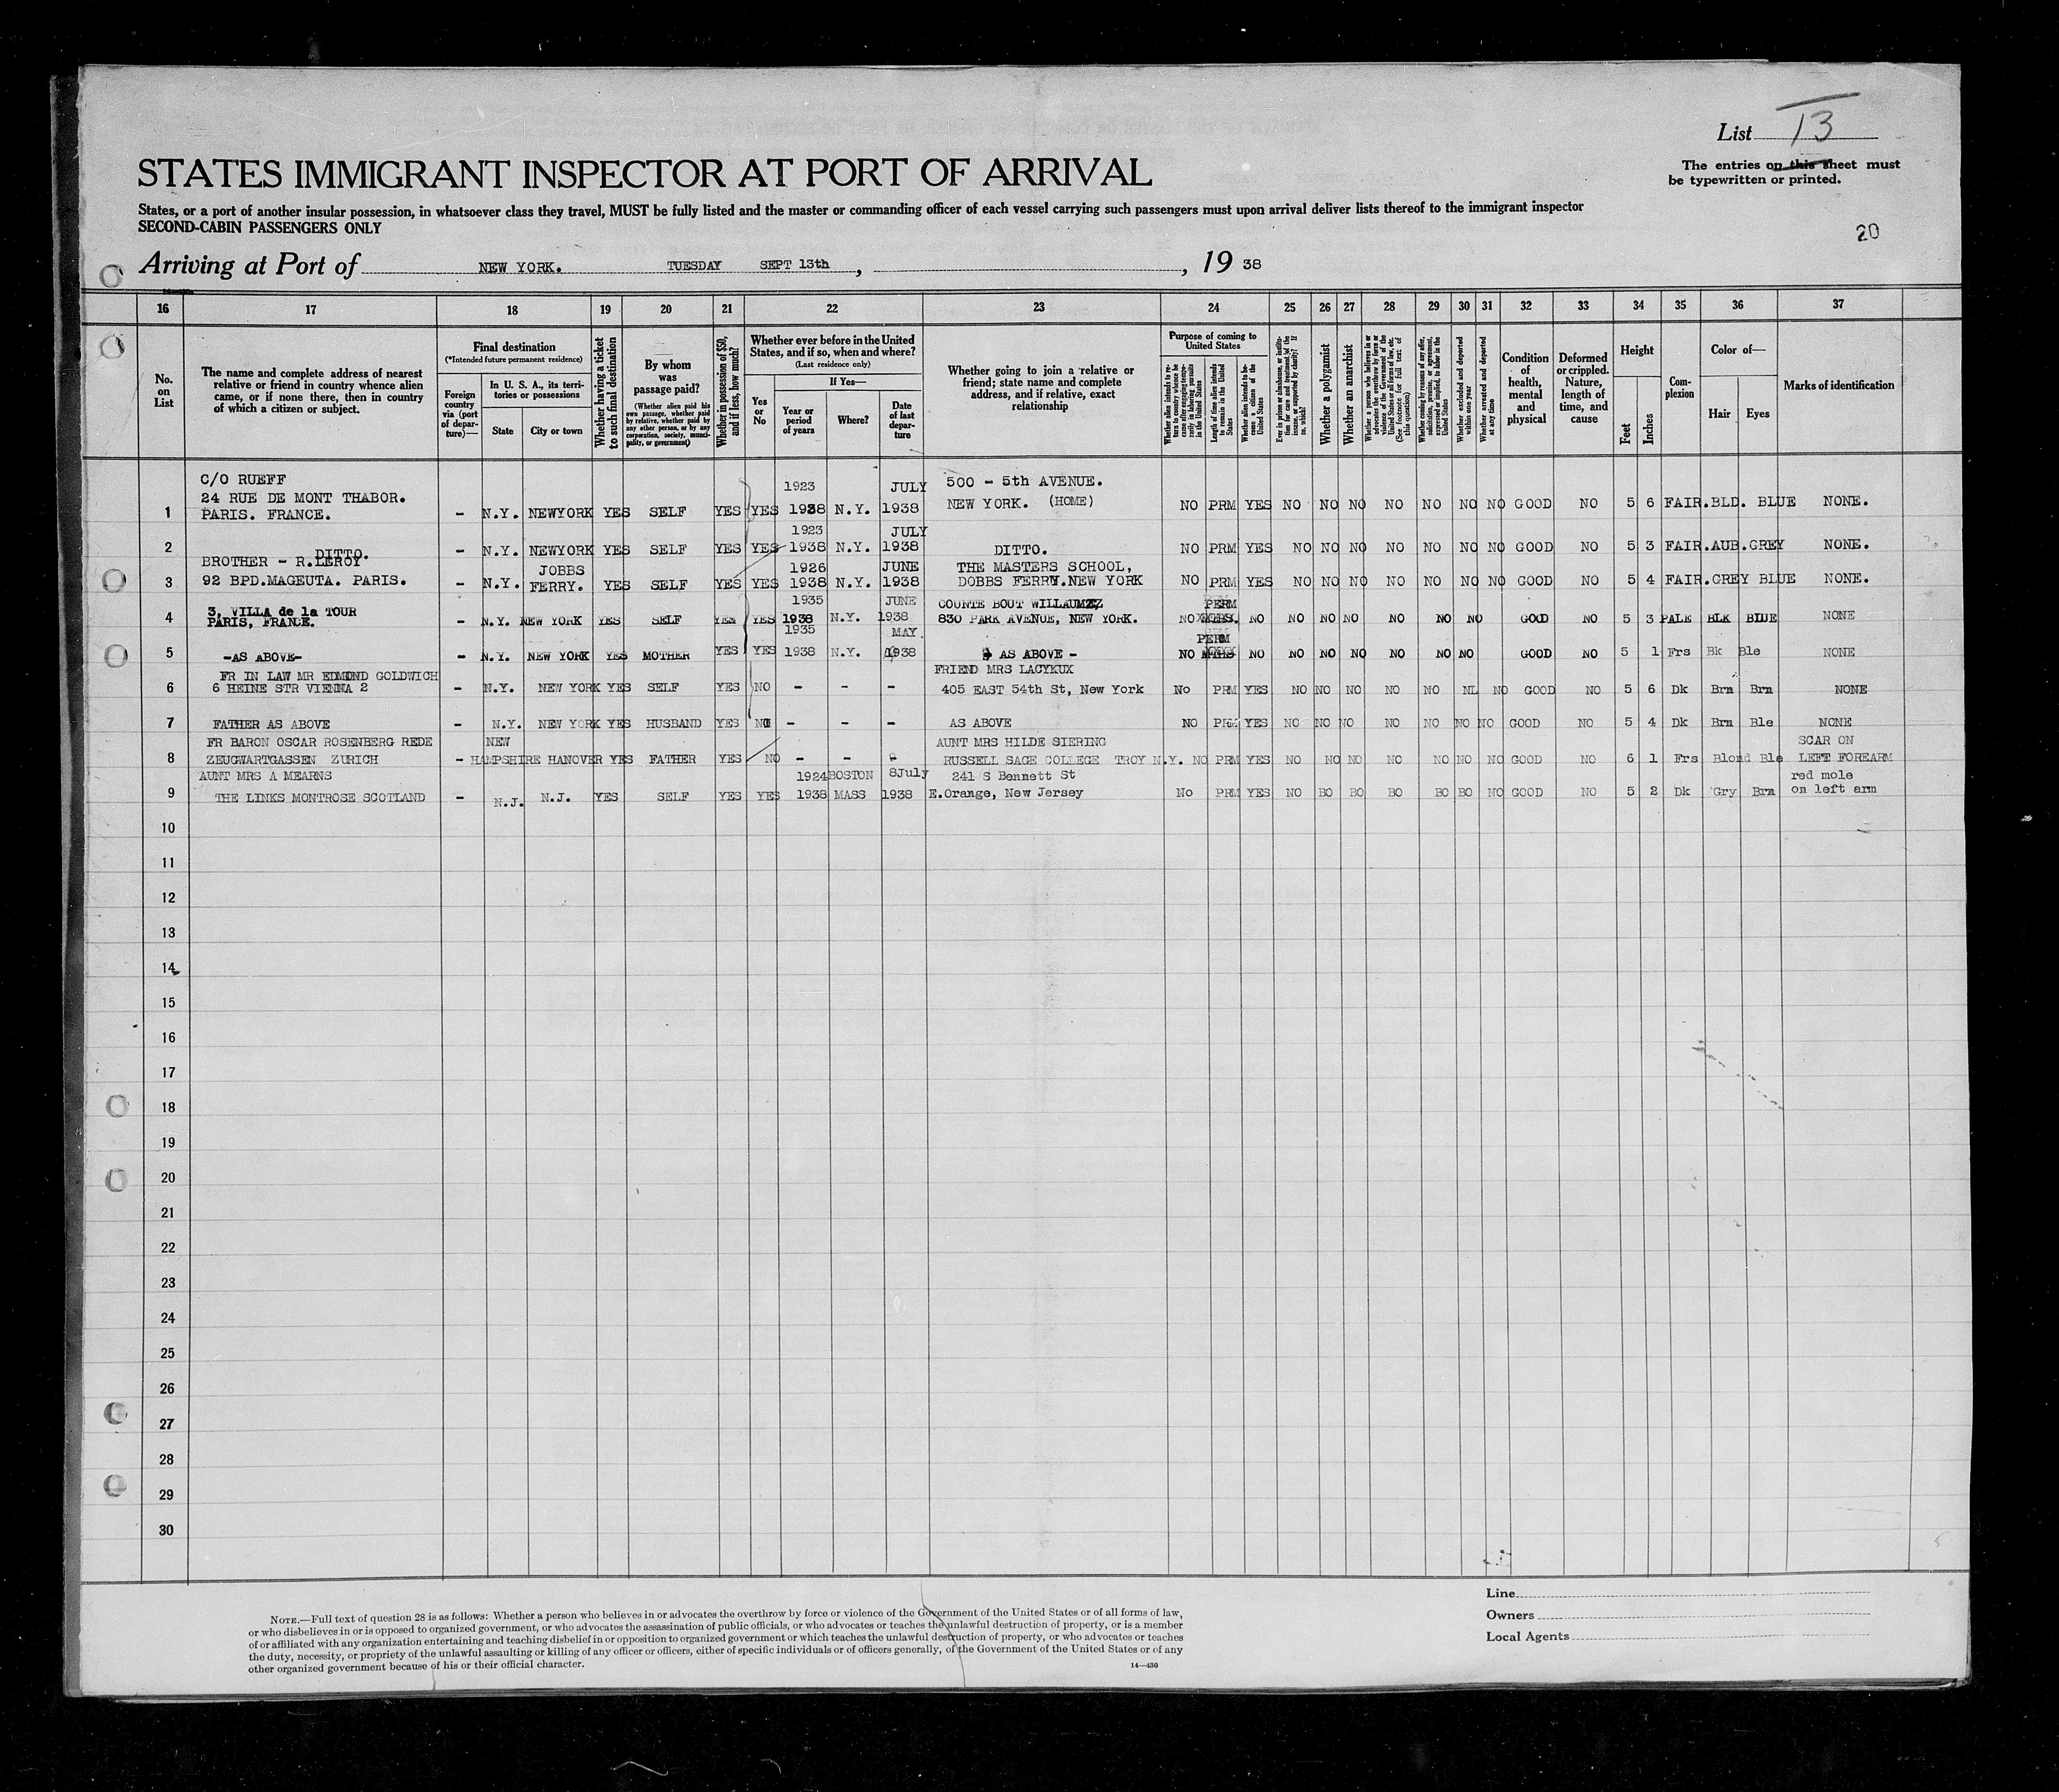 List 13
STATES IMMIGRANT INSPECTOR AT PORT OF ARRIVAL
The entries on this sheet must
be typewritten or printed.
States, or a port of another insular possession, in whatsoever class they travel, MUST be fully listed and the master or commanding officer of each vessel carrying such passengers must upon arrival deliver lists thereof to the immigrant inspector
SECOND-CABIN PASSENGERS ONLY
20
Arriving at Port of NEW YORK. TUESDAY SEPT 13th, , 19 38
16 17 18 19 20 21 22 23 24 25 26 27 28 29 30 31 32 33 34 35 36 37
No. on List
The name and complete address of nearest relative or friend in country whence alien came, or if none there, then in country of which a citizen or subject.
Final destination
(*Intended future permanent residence)
Foreign country via (port of departure)—
In U. S. A., its territories or possessions
State
City or town
Whether having a ticket to such final destination
By whom was passage paid?
(Whether alien paid his own passage, whether paid by relative, whether paid by any other person, or by any corporation, society, municipality, or government)
Whether in possession of $50, and if less, how much?
Whether ever before in the United States, and if so, when and where?
(Last residence only)
Yes or No
If Yes—
Year or period of years
Where?
Date of last departure
Whether going to join a relative or friend; state name and complete address, and if relative, exact relationship
Purpose of coming to United States
Whether alien intends to return to country whence he came after engaging temporarily in laboring pursuits in the United States
Length of time alien intends to remain in the United States
Whether alien intends to become a citizen of the United States
Ever in prison or almshouse, or institution for care and treatment of the insane, or supported by charity? If so, which?
Whether a polygamist
Whether an anarchist
Whether a person who believes in or advocates the overthrow by force or violence of the Government of the United States or all forms of law, etc. (See footnote for full text of this question)
Whether coming by reasons of any offer, solicitation, promise, or agreement, expressed or implied, to labor in the United States
Whether excluded and deported within one year
Whether arrested and deported at any time
Condition of health, mental and physical
Deformed or crippled. Nature, length of time, and cause
Height
Feet
Inches
Complexion
Color of—
Hair
Eyes
Marks of identification
C/O RUEFF
24 RUE DE MONT THABOR. 1923 JULY 500 - 5th AVENUE.
1 PARIS. FRANCE. - N.Y. NEWYORK YES SELF YES YES 1938 N.Y. 1938 NEW YORK. (HOME) NO PRM YES NO NO NO NO NO NO NO GOOD NO 5 6 FAIR. BLD. BLUE NONE.
1923 JULY
2 DITTO. - N.Y. NEWYORK YES SELF YES YES 1938 N.Y. 1938 DITTO. NO PRM YES NO NO NO NO NO NO NO GOOD NO 5 3 FAIR. AUB. GREY NONE.
BROTHER - R.LEROY JOBBS 1926 JUNE THE MASTERS SCHOOL,
3 92 BPD.MAGEUTA. PARIS. - N.Y. FERRY. YES SELF YES YES 1938 N.Y. 1938 DOBBS FERRY.NEW YORK NO PRM YES NO NO NO NO NO NO NO GOOD NO 5 4 FAIR. GREY BLUE NONE.
3, VILLA de la TOUR 1935 JUNE COUNTE BOUT WILLAUMEZ PERM
4 PARIS, FRANCE. - N.Y. NEW YORK YES SELF YES YES 1938 N.Y. 1938 830 PARK AVENUE, NEW YORK. NO NO NO NO NO NO NO NO GOOD NO 5 3 PALE BLK BLUE NONE
1935 MAY PERM
5 -AS ABOVE- - N.Y. NEW YORK YES MOTHER YES YES 1938 N.Y. 1938 AS ABOVE - NO NO NO NO NO NO NO NO GOOD NO 5 1 Frs Bk Ble NONE
FR IN LAW MR EDMOND GOLDWICH FRIEND MRS LACYKUX
6 6 HEINE STR VIENNA 2 - N.Y. NEW YORK YES SELF YES NO - - - 405 EAST 54th St, New York No PRM YES NO NO NO NO NO NL NO GOOD NO 5 6 Dk Brn Brn NONE
7 FATHER AS ABOVE - N.Y. NEW YORK YES HUSBAND YES NO - - - AS ABOVE NO PRM YES NO NO NO NO NO NO NO GOOD NO 5 4 Dk Brn Ble NONE
FR BARON OSCAR ROSENBERG REDE NEW AUNT MRS HILDE SIERING SCAR ON
8 ZEUGWARTGASSEN ZURICH - HAMPSHIRE HANOVER YES FATHER YES NO - - - RUSSELL SAGE COLLEGE TROY N.Y. NO PRM YES NO NO NO NO NO NO NO GOOD NO 6 1 Frs Blond Ble LEFT FOREARM
AUNT MRS A MEARNS 1924 BOSTON 8July 241 S Bennett St red mole
9 THE LINKS MONTROSE SCOTLAND - N.J. N.J. YES SELF YES YES 1938 MASS 1938 E.Orange, New Jersey No PRM YES NO BO BO BO BO BO NO GOOD NO 5 2 Dk Gry Brn on left arm
10
11
12
13
14
15
16
17
18
19
20
21
22
23
24
25
26
27
28
29
30
Line
Owners
Local Agents
NOTE.—Full text of question 28 is as follows: Whether a person who believes in or advocates the overthrow by force or violence of the Government of the United States or of all forms of law,
or who disbelieves in or is opposed to organized government, or who advocates the assassination of public officials, or who advocates or teaches the unlawful destruction of property, or is a member
of or affiliated with any organization entertaining and teaching disbelief in or opposition to organized government or which teaches the unlawful destruction of property, or who advocates or teaches
the duty, necessity, or propriety of the unlawful assaulting or killing of any officer or officers, either of specific individuals or of officers generally, of the Government of the United States or of any
other organized government because of his or their official character.
14—430